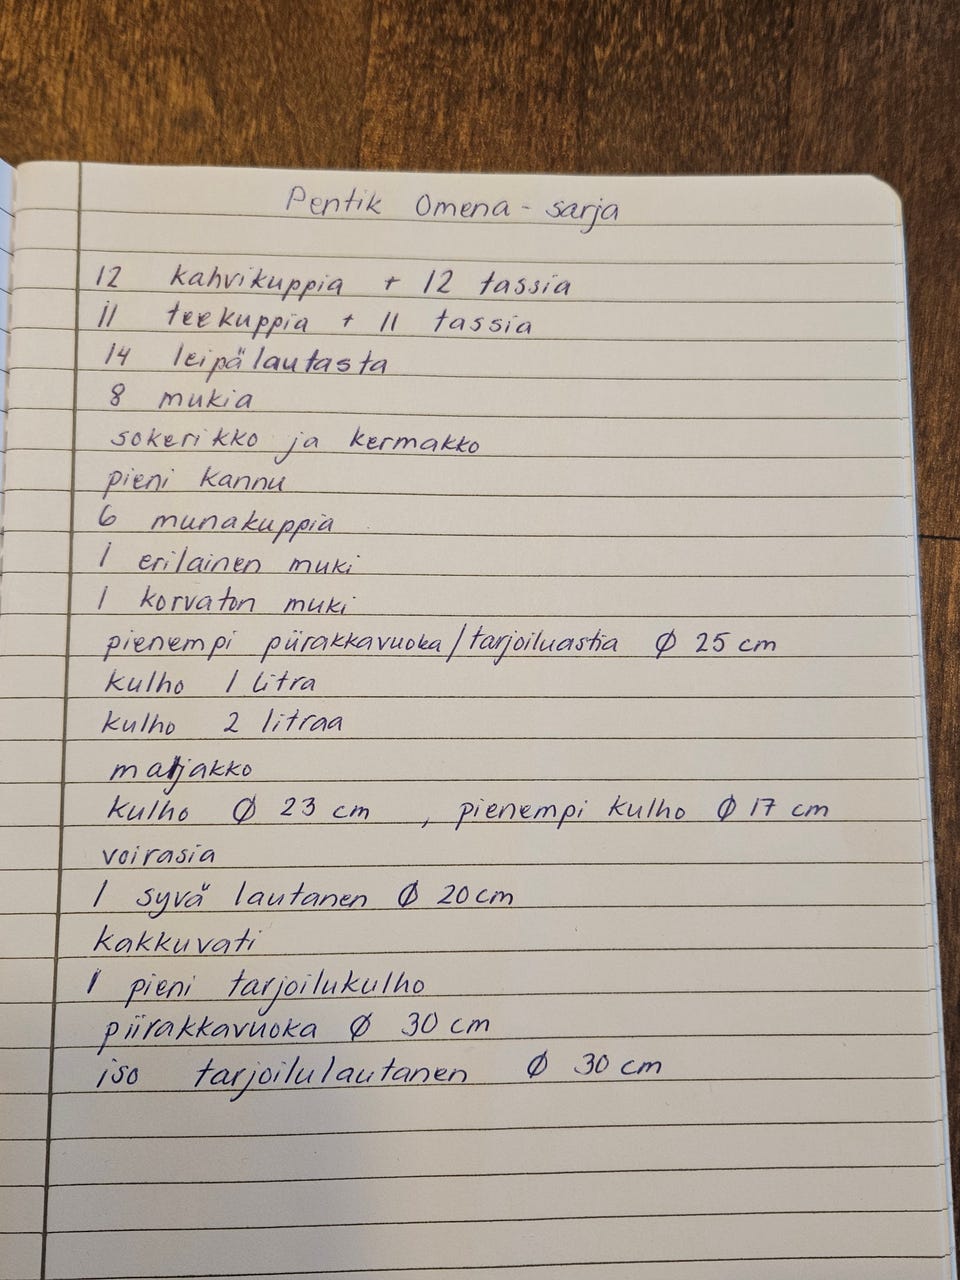 Pentik Omena - sarja
12 kahvikuppia + 12 tassia
11 teekuppia + 11 tassia
14 leipälautasta
8 mukia
sokerikko ja kermakko
pieni kannu
6 munakuppia
1 erilainen muki
1 korvaton muki
pienempi piirakkavuoka/tarjoiluastia Ø 25 cm
kulho 1 litra
kulho 2 litraa
marjakko
kulho Ø 23 cm , pienempi kulho Ø 17 cm
voirasia
1 syvä lautanen Ø 20 cm
kakkuvati
1 pieni tarjoilukulho
piirakkavuoka Ø 30 cm
iso tarjoilulautanen Ø 30 cm